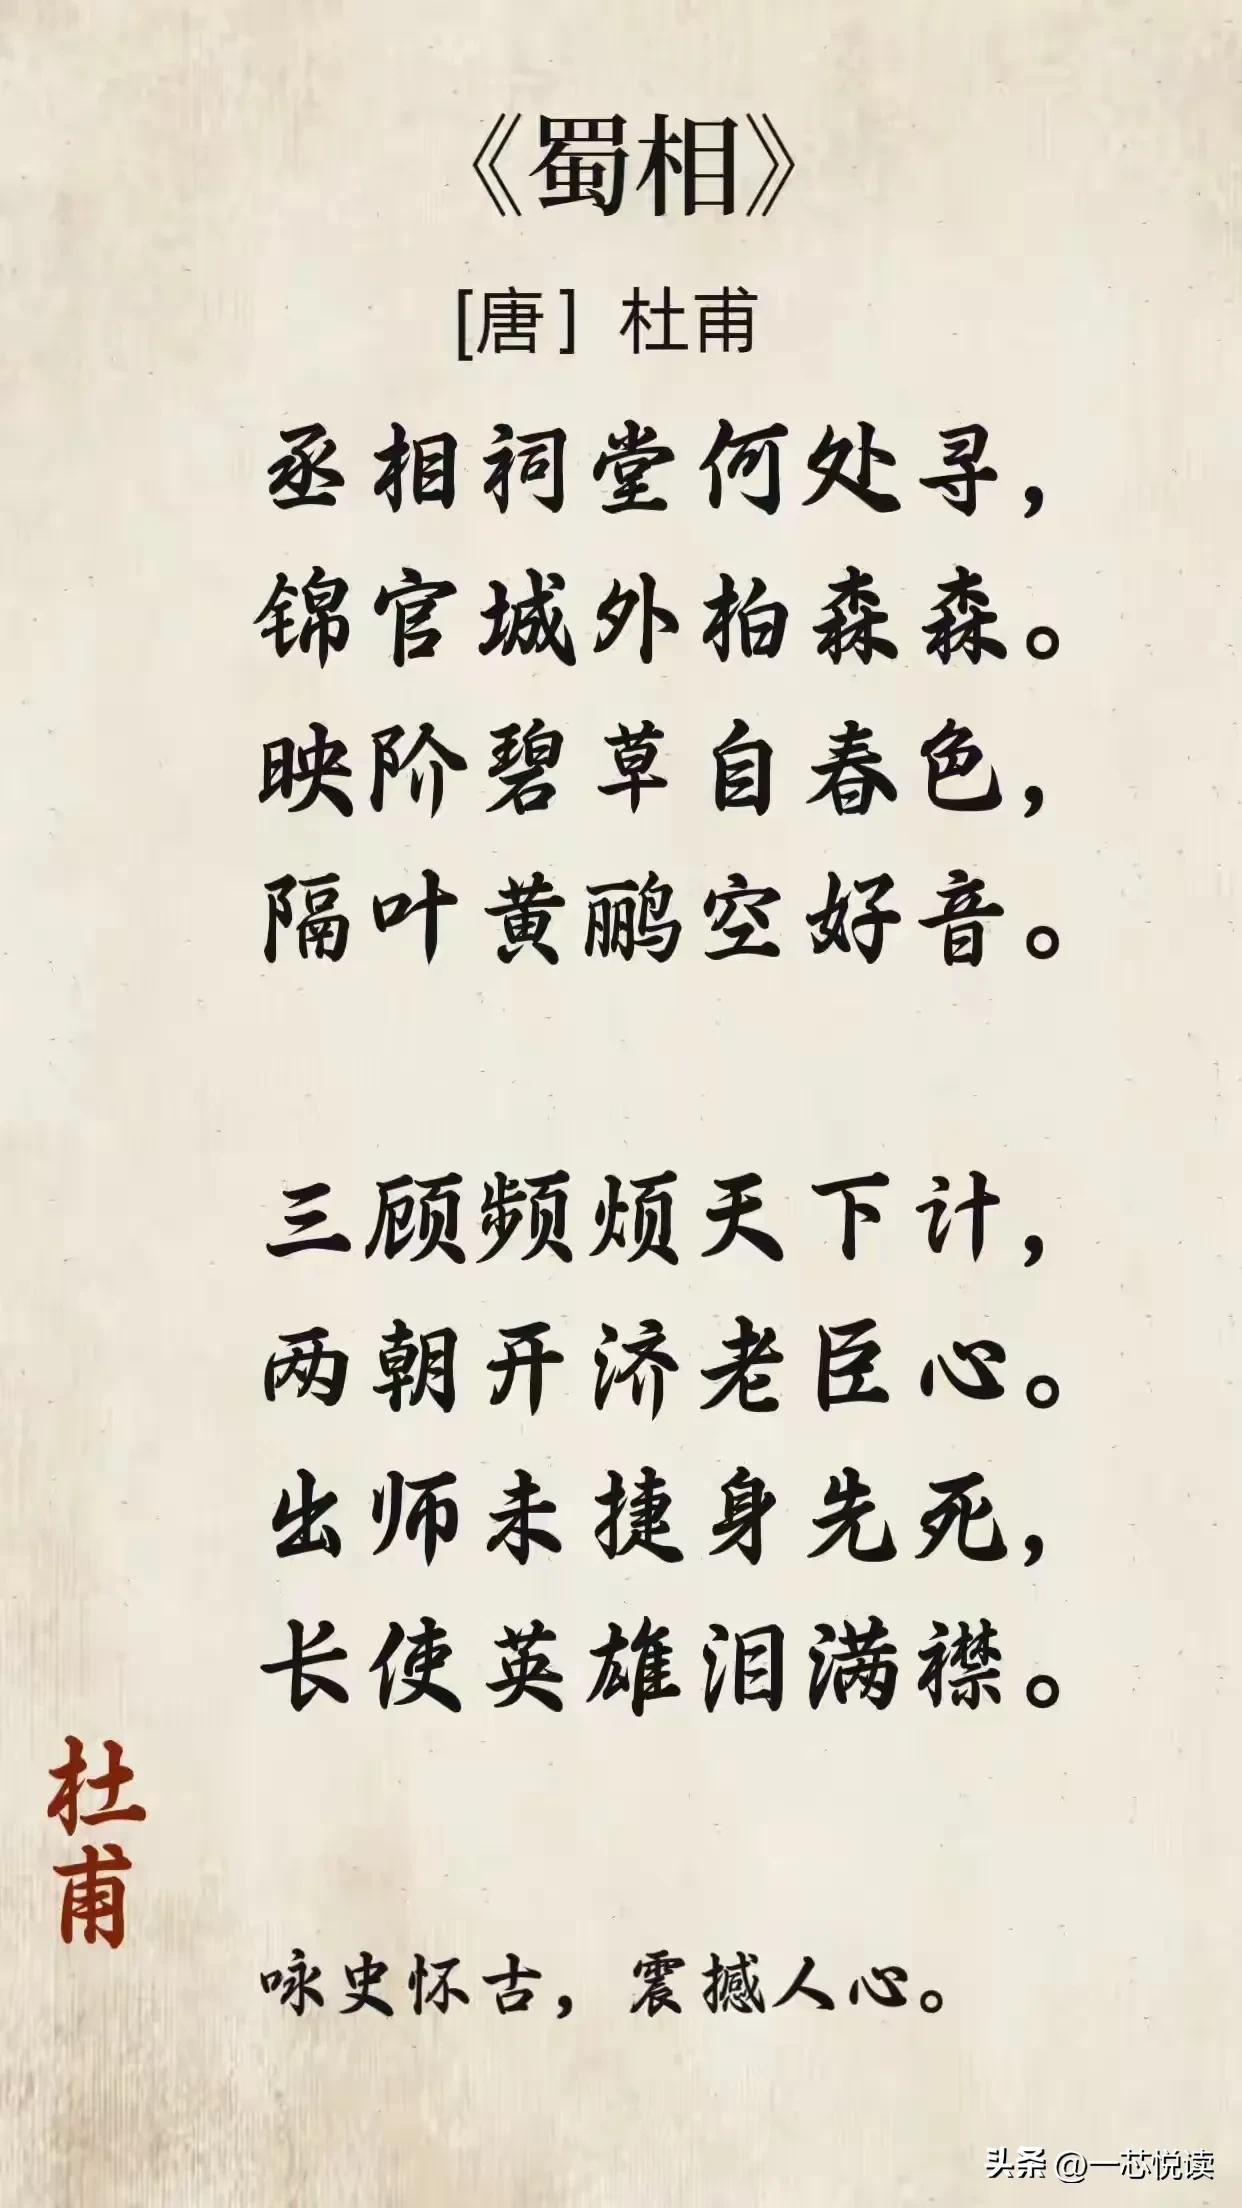 《蜀相》
[唐] 杜甫
丞相祠堂何处寻，
锦官城外柏森森。
映阶碧草自春色，
隔叶黄鹂空好音。
三顾频烦天下计，
两朝开济老臣心。
出师未捷身先死，
长使英雄泪满襟。
杜甫
咏史怀古，震撼人心。
头条 @一芯悦读